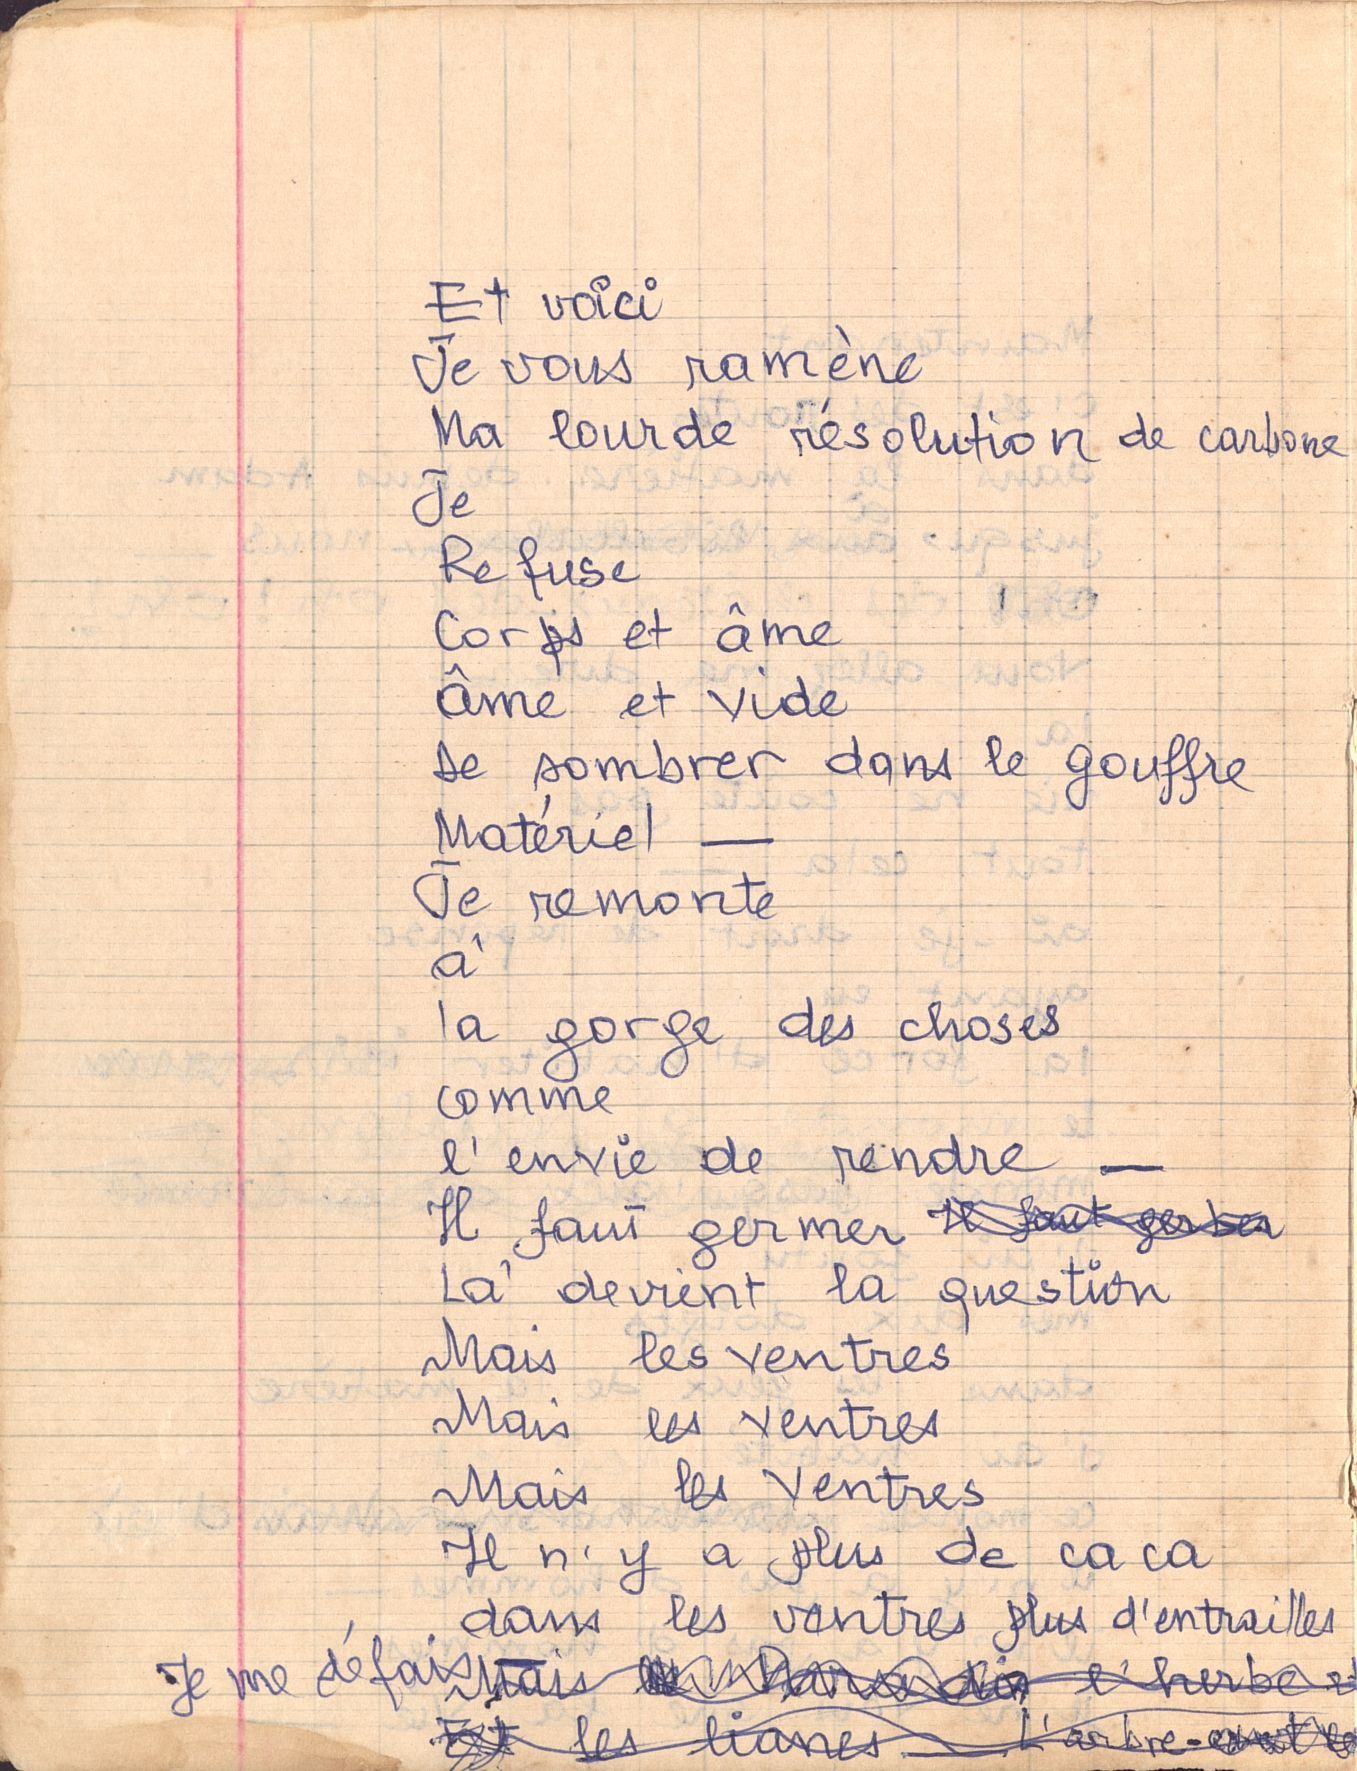 Et voici
Je vous ramène
Ma lourde résolution de carbone
Je
Refuse
Corps et âme
Âme et vide
de sombrer dans le gouffre
Matériel —
Je remonte
à
la gorge des choses
comme
l'envie de rendre —
Il faut germer Il faut gerber
Là devient la question
Mais les ventres
Mais les ventres
Mais les Ventres
Il n'y a plus de caca
dans les ventres plus d'entrailles
Je me défais Mais l'herbe et
Et les lianes — L'arbre